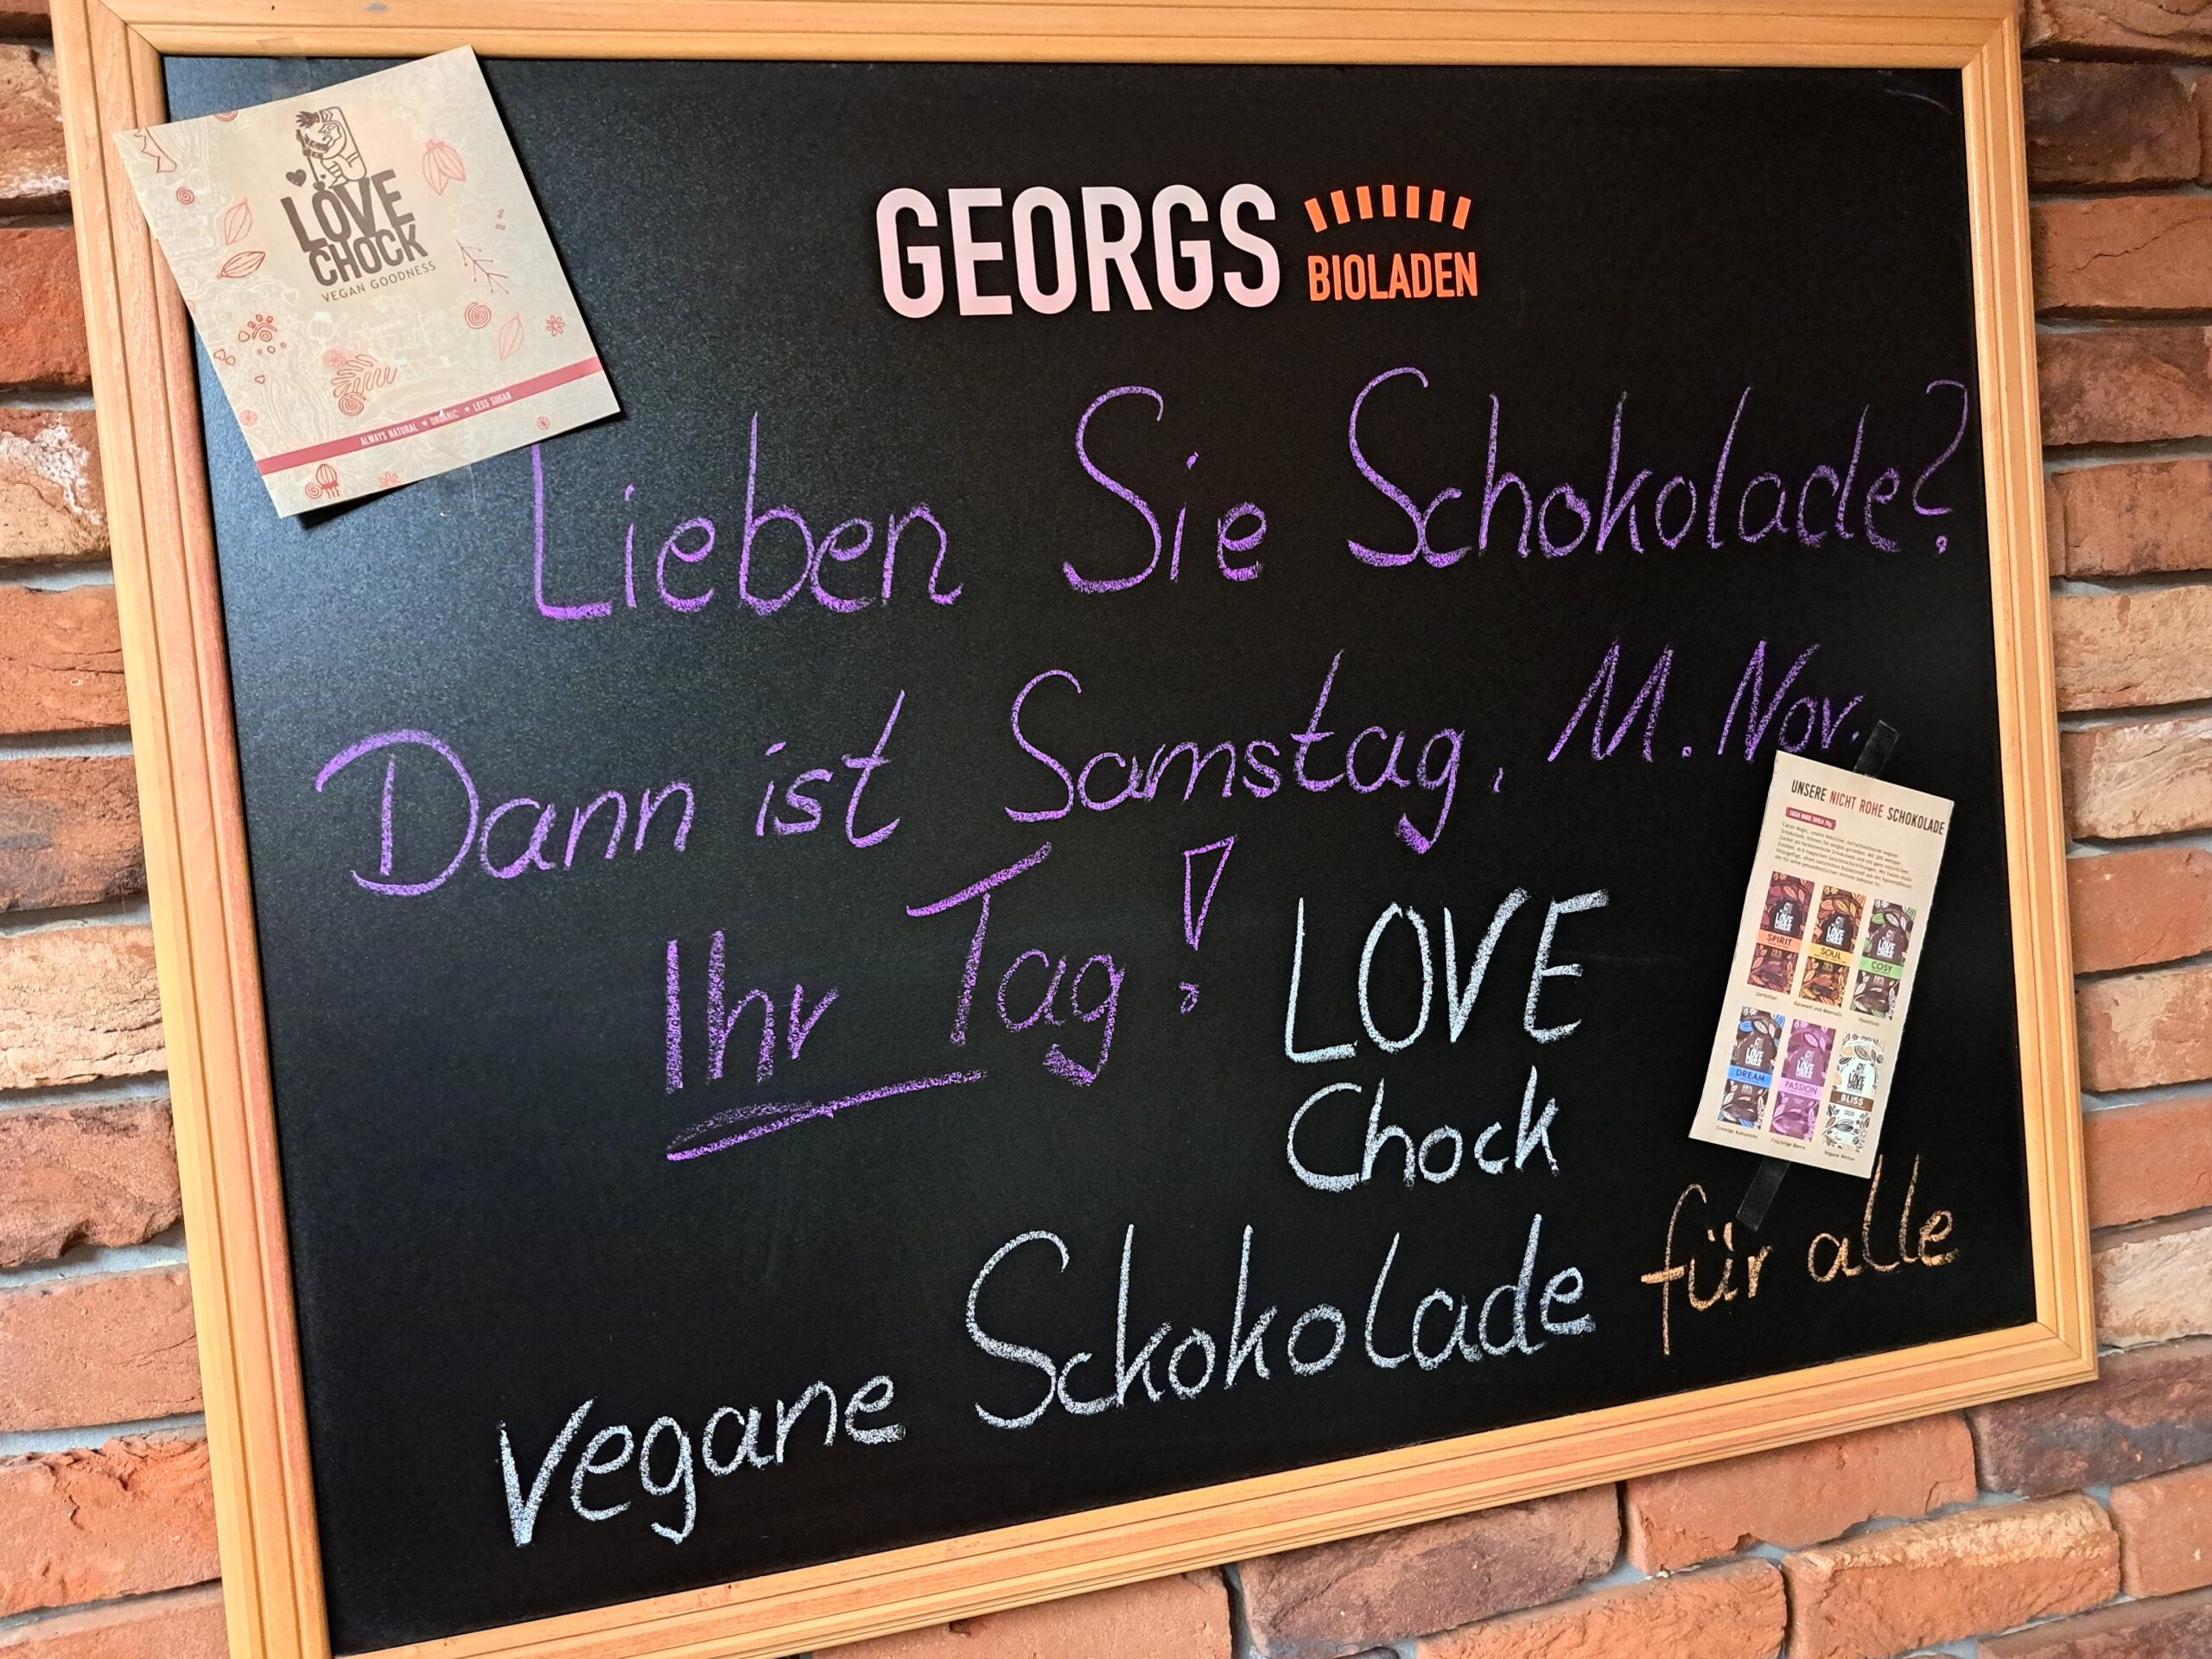 LOVE
CHOCK
VEGAN GOODNESS
ALWAYS NATURAL ♥ ORGANIC ♥ LESS SUGAR
GEORGS BIOLADEN
Lieben Sie Schokolade?
Dann ist Samstag, 11. Nov.
Ihr Tag!
LOVE
Chock
Vegane Schokolade für alle
UNSERE NICHT ROHE SCHOKOLADE
SPIRIT
SOUL
COSY
DREAM
PASSION
BLISS